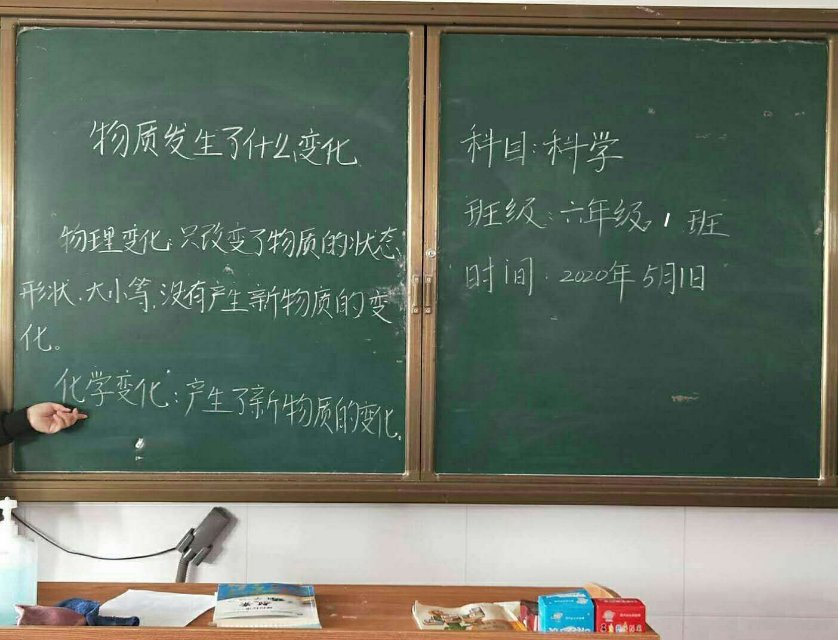 物质发生了什么变化
物理变化:只改变了物质的状态、
形状、大小等,没有产生新物质的变
化。
化学变化:产生了新物质的变化。
科目:科学
班级:六年级,1班
时间:2020年5月1日